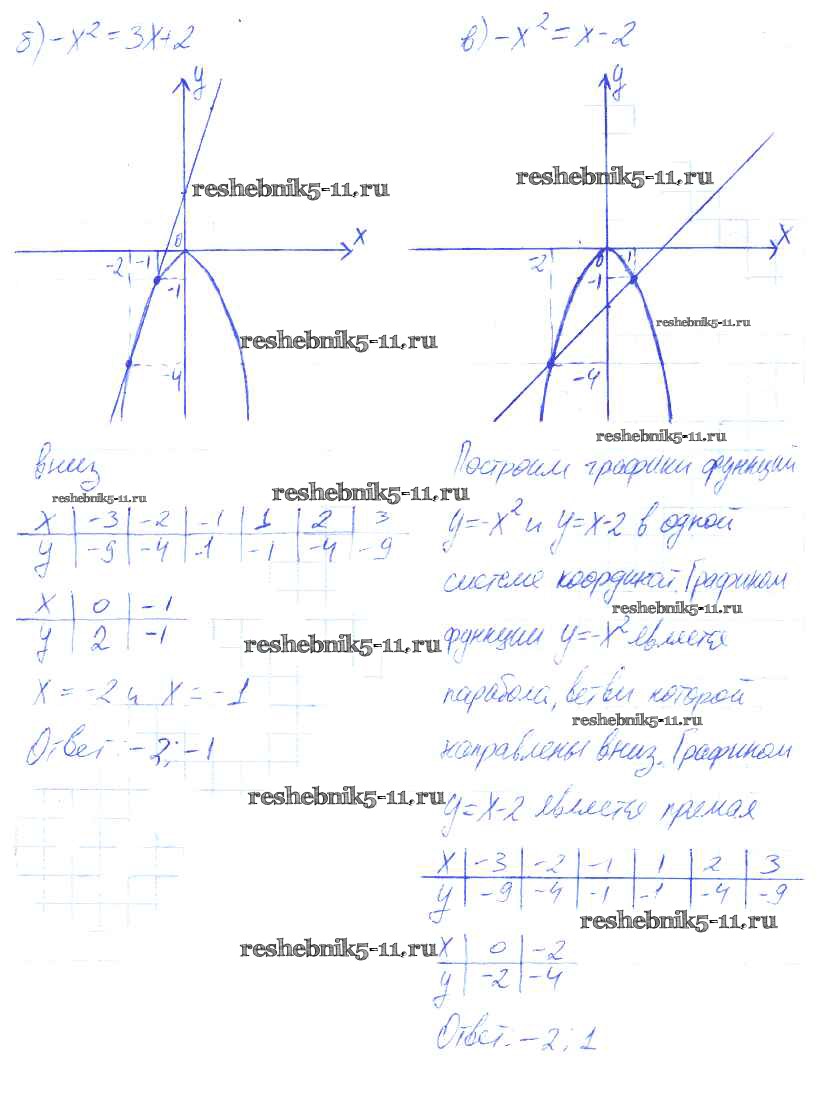 б) -x² = 3x+2
y
reshebnik5-11.ru
x
0
-2 -1
-1
reshebnik5-11.ru
-4
вниз
reshebnik5-11.ru
reshebnik5-11.ru
x | -3 | -2 | -1 | 1 | 2 | 3
y | -9 | -4 | -1 | -1 | -4 | -9
x | 0 | -1
y | 2 | -1
reshebnik5-11.ru
x = -2 и x = -1
Ответ: -2; -1
reshebnik5-11.ru
reshebnik5-11.ru
в) -x² = x-2
y
reshebnik5-11.ru
x
0
-2 1
-1
reshebnik5-11.ru
-4
reshebnik5-11.ru
Построим графики функций
y=-x² и y=x-2 в одной
системе координат. Графиком
reshebnik5-11.ru
функции y=-x² является
парабола, ветви которой
reshebnik5-11.ru
направлены вниз. Графиком
y=x-2 является прямая
x | -3 | -2 | -1 | 1 | 2 | 3
y | -9 | -4 | -1 | -1 | -4 | -9
reshebnik5-11.ru
x | 0 | -2
y | -2 | -4
Ответ: -2; 1